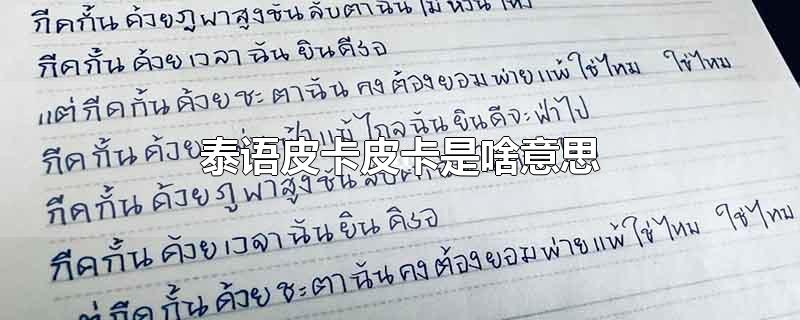 กีดกั้น ด้วยภูผาสูงชัน ลับตาฉัน ไม่
กีดกั้น ด้วย เวลา ฉัน ยินดีรอ
แต่ กีดกั้น ด้วย ชะ ตาฉัน คง ต้องยอม พ่ายแพ้ ใช่ไหม ใช่ไหม
กีดกั้น ด้วย ไกล ฉัน ยินดีจะ ฝ่าไป
泰语皮卡皮卡是啥意思
กีดกั้น ด้วย ภูผาสูงชัน
กีดกั้น ด้วยเวลา ฉัน ยิน ดีรอ
กีดกั้น ด้วย ชะตาฉัน คง ต้องยอม พ่ายแพ้ ใช่ไหม ใช่ไหม